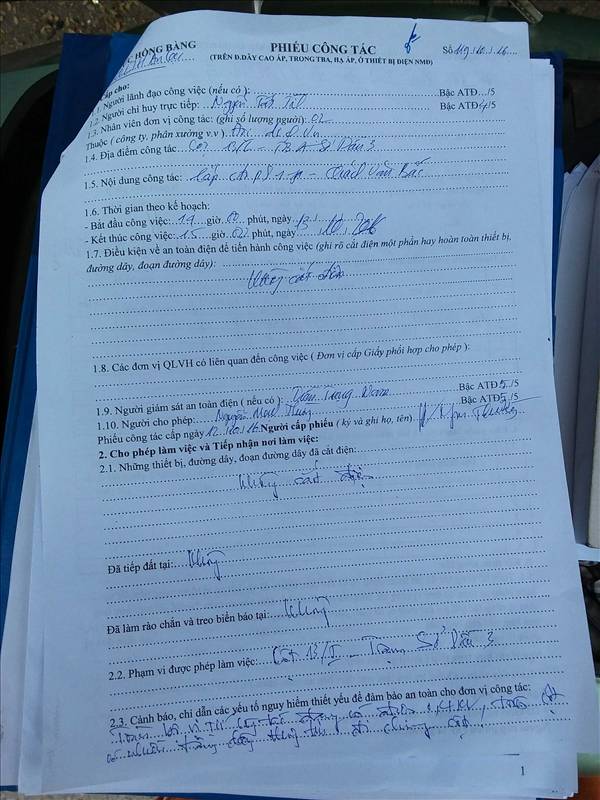 HỒNG BÀNG
PHIẾU CÔNG TÁC
Số 119/10/16
(TRÊN Đ.DÂY CAO ÁP, TRONG TBA, HẠ ÁP, Ở THIẾT BỊ ĐIỆN NMĐ)
cấp cho:
1.1. Người lãnh đạo công việc (nếu có): Bậc ATĐ.../5
1.2. Người chỉ huy trực tiếp: Nguyễn Bậc ATĐ 4/5
1.3. Nhân viên đơn vị công tác: (ghi số lượng người): 02
Thuộc ( công ty, phân xưởng v.v )
1.4. Địa điểm công tác: Cột 13/I - TBA Sở Dầu 3
1.5. Nội dung công tác: Lắp - Quách Văn Bắc
1.6. Thời gian theo kế hoạch:
- Bắt đầu công việc: 14 giờ 00 phút, ngày 13/
- Kết thúc công việc: 15 giờ 00 phút, ngày 10/2016
1.7. Điều kiện về an toàn điện để tiến hành công việc (ghi rõ cắt điện một phần hay hoàn toàn thiết bị,
đường dây, đoạn đường dây):
không cắt điện
1.8. Các đơn vị QLVH có liên quan đến công việc ( Đơn vị cấp Giấy phối hợp cho phép ):
1.9. Người giám sát an toàn điện ( nếu có ): Trần Nam Bậc ATĐ 5/5
1.10. Người cho phép: Nguyễn Mạnh Hùng Bậc ATĐ 5/5
Phiếu công tác cấp ngày 12/10/16 Người cấp phiếu ( ký và ghi họ, tên)
2. Cho phép làm việc và Tiếp nhận nơi làm việc:
2.1. Những thiết bị, đường dây, đoạn đường dây đã cắt điện:
không cắt điện
Đã tiếp đất tại: không
Đã làm rào chắn và treo biển báo tại: không
2.2. Phạm vi được phép làm việc: Cột 13/I - Trạm Sở Dầu 3
2.3. Cảnh báo, chỉ dẫn các yếu tố nguy hiểm thiết yếu để đảm bảo an toàn cho đơn vị công tác:
công tác đang có điện 0,4KV, trên cột
có nhiều đi chung cột
1